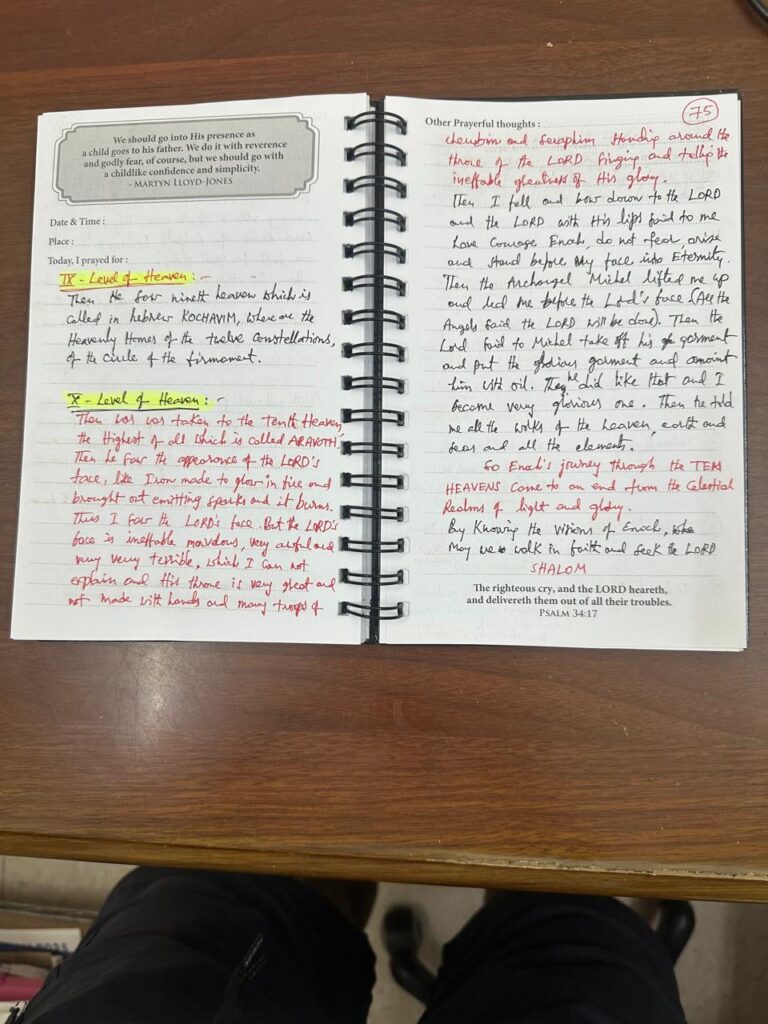 We should go into His presence as
a child goes to his father. We do it with reverence
and godly fear, of course, but we should go with
a childlike confidence and simplicity.
- MARTYN LLOYD-JONES
Date & Time :
Place :
Today, I prayed for :
IX - Level of Heaven : -
Then He saw nineth heaven which is
called in hebrew KOCHAVIM, where are the
Heavenly Homes of the twelve Constellations,
of the circle of the firmament.
X - Level of Heaven : -
Then was taken to the Tenth Heaven,
the Highest of all which is called ARAVOTH.
Then he saw the appearance of the LORD's
face, like Iron made to glow in fire and
brought out emitting sparks and it burns.
Thus I saw the LORD's face. But the LORD's
face is ineffable marvelous, very awful and
very very terrible, which I Can not
explain and His throne is very great and
not made with hands and many troops of
Other Prayerful thoughts :
75
cherubim and Seraphim standing around the
throne of the LORD singing and telling the
ineffable greatness of His glory.
Then I fell and bow down to the LORD
and the LORD with His lips said to me
have Courage Enoch, do not fear, arise
and stand before My face into Eternity.
Then the Archangel Michel lifted me up
and led me before the Lord's face (All the
Angels said the LORD will be done). Then the
Lord said to Michel take off his garment
and put the glorious garment and anoint
him with oil. he did like that and I
became very glorious one. Then he told
me all the works of the heaven, earth and
seas and all the elements.
So Enoch's journey through the TEN
HEAVENS came to an end from the Celestial
Realms of light and glory.
By Knowing the visions of Enoch,
May we walk in faith and seek the LORD
SHALOM
The righteous cry, and the LORD heareth,
and delivereth them out of all their troubles.
PSALM 34:17